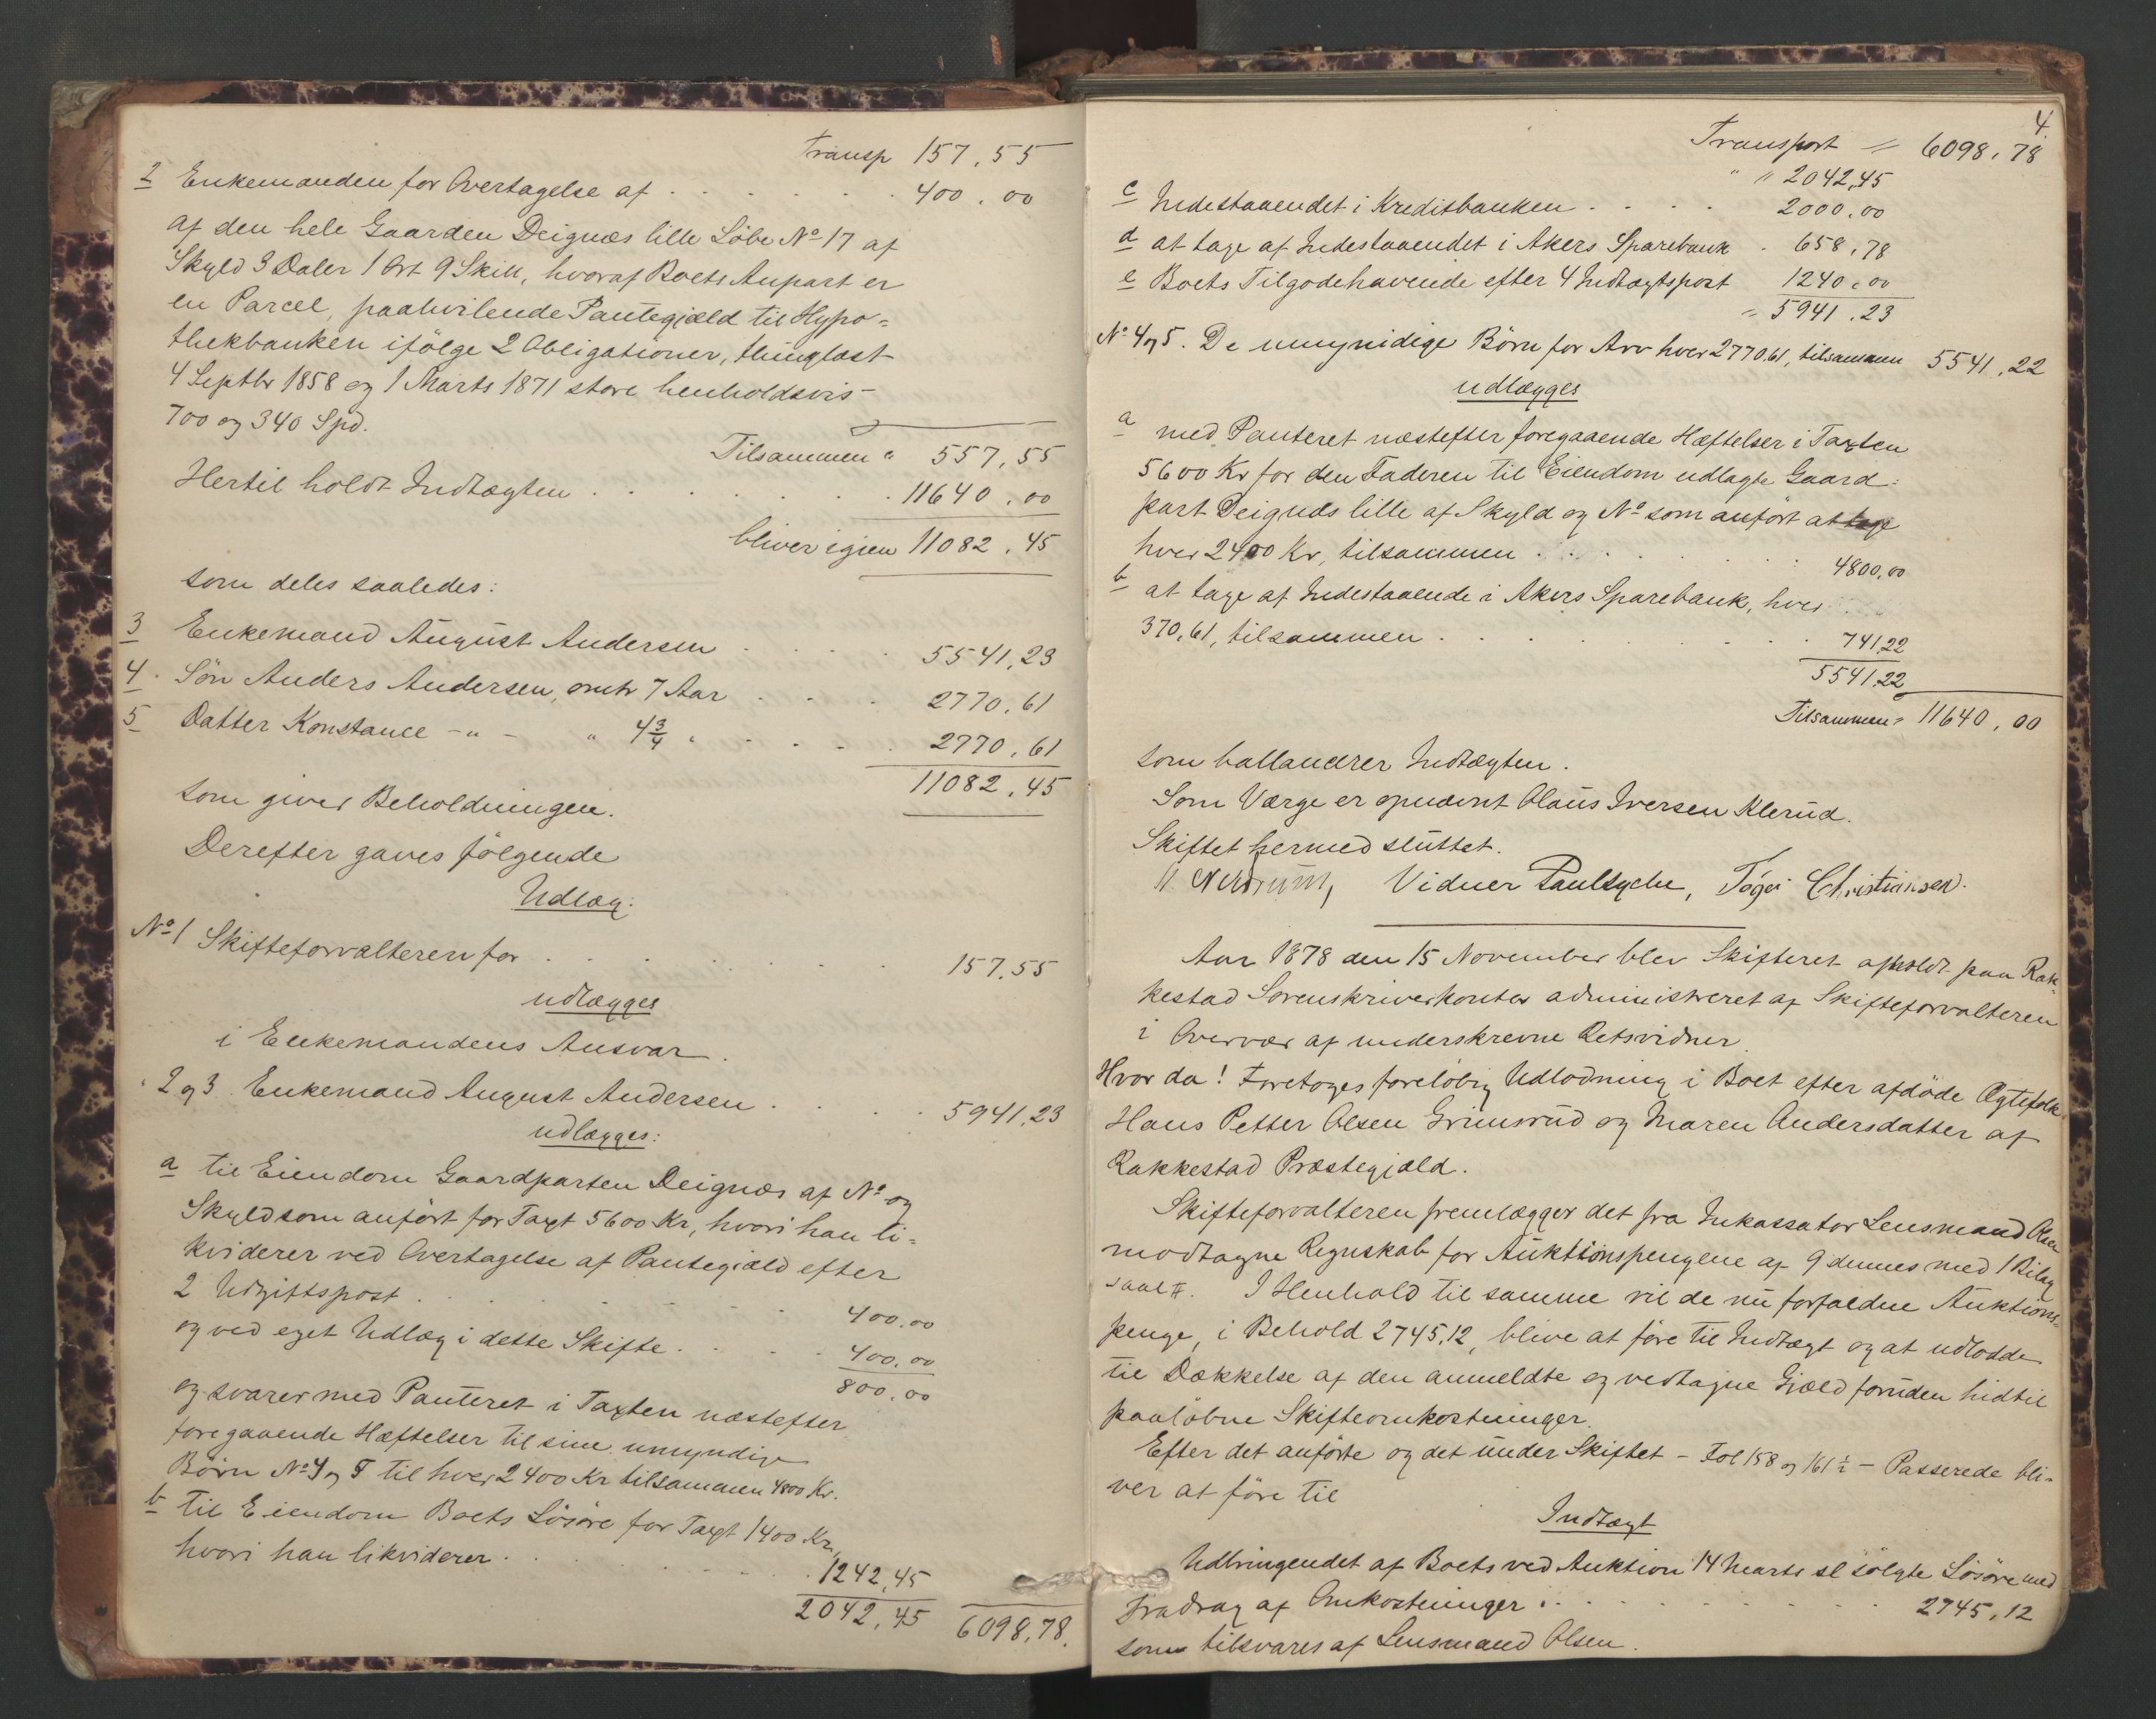 Transp 157.55
2 Enkemanden for Overtagelse af . . . . . . 400.00
af den hele Gaarden Deignæs lille Løbe No 17 af
Skyld 3 Daler 1 Ort 9 Skill, hvoraf Boets Anpart er
en Parcel, paahvilende Pantegjæld til Hypo=
thekbanken ifölge 2 Obligationer, thinglæst
4 Septbr 1858 og 1 Marts 1871 store henholdsvis
700 og 340 Spd.
Tilsammen " 557,55
Hertil holdt Indtægten . . . . . . 11640.00
bliver igjen 11082.45
som deles saaledes:
3 Enkemand August Andersen . . . . 5541,23
4. Sön Anders Andersen, omtr 7 Aar . . . 2770.61
5 Datter Konstance - " - " 4 3/4 " . . . . 2770.61
11082.45
som giver Beholdningen.
Derefter gaves fölgende
Udlæg:
No 1 Skifteforvalteren for . . . . . . 157.55
udlægges
i Enkemandens Ansvar.
2 og 3 Enkemand August Andersen . . . . 5941,23
udlægges:
a til Eiendom Gaardparten Deignæs af No og
Skyld som anfört for Taxt 5600 Kr, hvori han li=
kviderer ved Overtagelse af Pantegjæld efter
2 Udgiftspost . . . . . . 400.00
og ved eget Udlæg i dette Skifte . . . . 400.00
800.00
og svarer med Panteret i Taxten næstefter
foregaaende Hæftelser til sine umyndige
Börn No 4 og 5 til hver 2400 Kr tilsammen 4800 Kr.
b til Eiendom Boets Lösöre for Taxt 1400 Kr,
hvori han likviderer . . . . . . 1242,45
2042,45 6098,78.
4.
Transport = 6098,78
" " 2042,45
c Indestaaendet i Kreditbanken . . . . 2000.00
d at tage af Indestaaendet i Akers Sparebank . 658,78
e Boets Tilgodehavende efter 4 Indtægtspost 1240.00
= 5941.23
No 4 og 5. De umynidige Börn for Arv hver 2770.61, tilsammen 5541,22
udlægges
a med Panteret næstefter foregaaende Hæftelser i Taxten
5600 Kr for den Faderen til Eiendom udlagte Gaard=
part Deignæs lille af Skyld og No som anfört at tage
hver 2400 Kr, tilsammen . . . . . . 4800,00
b at tage af Indestaaende i Akers Sparebank, hver
370,61, tilsammen . . . . . . 741,22
5541,22
Tilsammen = 11640,00
som ballancerer Indtægten.
Som Værge er opnævnt Olaus Iversen Klerud.
Skiftet hermed sluttet.
Nerdrum, Vidner Paulsychn, Christiansen.
Aar 1878 den 15 November blev Skifteret afholdt paa Rak=
kestad Sorenskriverkontor administreret af Skifteforvalteren
i Overvær af underskrevne Retsvidner.
Hvor da! Foretoges forelöbig Udlodning i Boet efter afdöde Ægtefolk
Hans Petter Olsen Grimsrud og Maren Andersdatter af
Rakkestad Præstegjæld.
Skifteforvalteren fremlægger det fra Inkassator Lensmand Olsen
modtagne Regnskab for Auktionspengene af 9 dennes med 1 Bilag
saal. I Henhold til samme vil de nu forfaldne Auktions=
penge, i Behold 2745.12, blive at före til Indtægt og at udlodde
til Dækkelse af den anmeldte og vedtagne Gjæld foruden hidtil
paalöbne Skifteomkostninger.
Efter det anförte og det under Skiftet - Fol 158 og 161 1/2 - Passerede bli=
ver at före til
Indtægt
Udbringendet af Boets ved Auktion 14 Marts sl solgte Lösöre med
Fradrag af Omkostninger . . . . . . 2745,12
som tilsvares af Lensmand Olsen.